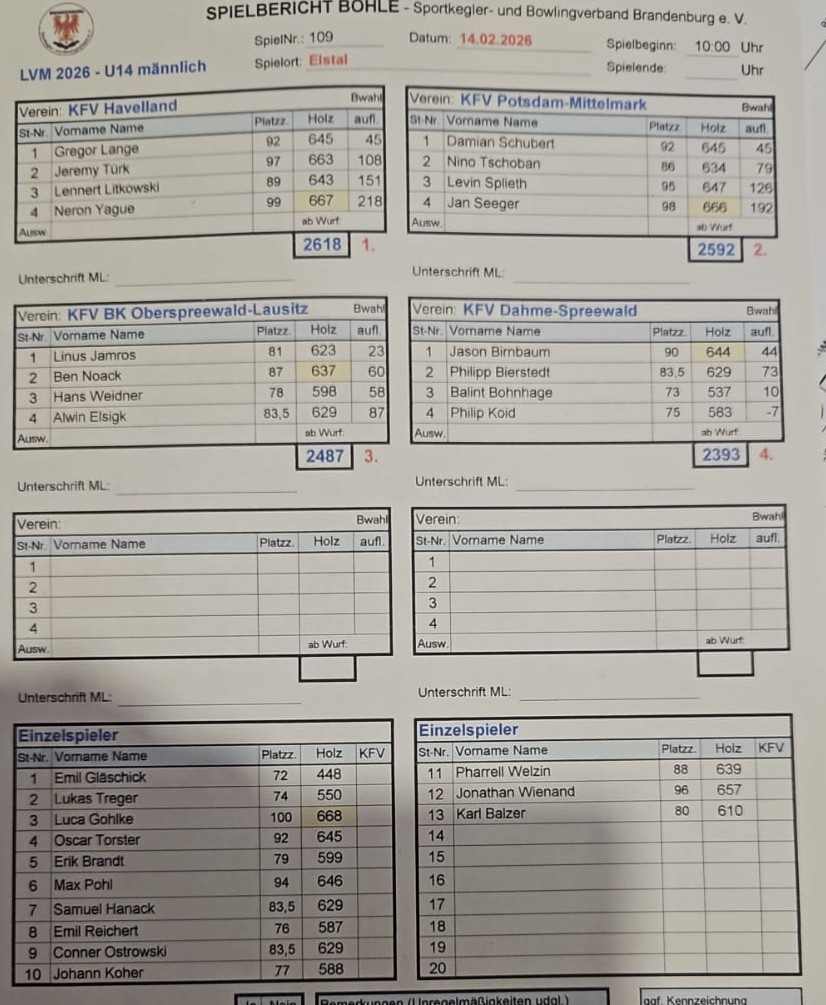 SPIELBERICHT BOHLE - Sportkegler- und Bowlingverband Brandenburg e. V.
SpielNr.: 109 Datum: 14.02.2026 Spielbeginn: 10:00 Uhr
LVM 2026 - U14 männlich Spielort: Elstal Spielende: Uhr
Verein: KFV Havelland Bwahl
St-Nr. Vorname Name Platzz. Holz aufl.
1 Gregor Lange 92 645 45
2 Jeremy Türk 97 663 108
3 Lennert Litkowski 89 643 151
4 Neron Yague 99 667 218
Ausw. ab Wurf:
2618 1.
Unterschrift ML:
Verein: KFV Potsdam-Mittelmark Bwahl
St-Nr. Vorname Name Platzz. Holz aufl.
1 Damian Schubert 92 645 45
2 Nino Tschoban 86 634 79
3 Levin Splieth 95 647 126
4 Jan Seeger 98 666 192
Ausw. ab Wurf:
2592 2.
Unterschrift ML:
Verein: KFV BK Oberspreewald-Lausitz Bwahl
St-Nr. Vorname Name Platzz. Holz aufl.
1 Linus Jamros 81 623 23
2 Ben Noack 87 637 60
3 Hans Weidner 78 598 58
4 Alwin Elsigk 83,5 629 87
Ausw. ab Wurf:
2487 3.
Unterschrift ML:
Verein: KFV Dahme-Spreewald Bwahl
St-Nr. Vorname Name Platzz. Holz aufl.
1 Jason Birnbaum 90 644 44
2 Philipp Bierstedt 83,5 629 73
3 Balint Bohnhage 73 537 10
4 Philip Koid 75 583 -7
Ausw. ab Wurf:
2393 4.
Unterschrift ML:
Verein: Bwahl
St-Nr. Vorname Name Platzz. Holz aufl.
1
2
3
4
Ausw. ab Wurf:
Unterschrift ML:
Verein: Bwahl
St-Nr. Vorname Name Platzz. Holz aufl.
1
2
3
4
Ausw. ab Wurf:
Unterschrift ML:
Einzelspieler
St-Nr. Vorname Name Platzz. Holz KFV
1 Emil Gläschick 72 448
2 Lukas Treger 74 550
3 Luca Gohlke 100 668
4 Oscar Torster 92 645
5 Erik Brandt 79 599
6 Max Pohl 94 646
7 Samuel Hanack 83,5 629
8 Emil Reichert 76 587
9 Conner Ostrowski 83,5 629
10 Johann Koher 77 588
Einzelspieler
St-Nr. Vorname Name Platzz. Holz KFV
11 Pharrell Welzin 88 639
12 Jonathan Wienand 96 657
13 Karl Balzer 80 610
14
15
16
17
18
19
20
Ja Nein Bemerkungen (Unregelmäßigkeiten udgl.) ggf. Kennzeichnung